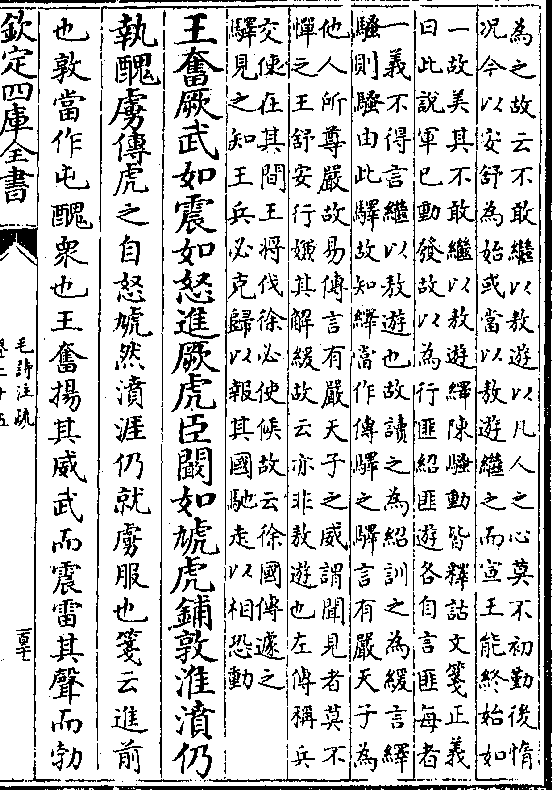 為之故云不敢繼以敖遊以凡人之心莫不初勤後惰
况今以安舒為始或當以敖遊繼之而宣王能終始如
一故美其不敢繼以敖遊繹陳騷動皆釋詁文箋正義
曰此說軍已動發故以為行匪紹匪遊各自言匪每者
一義不得言繼以敖遊也故讀之為紹訓之為緩言繹
騷則騷由此驛故知繹當作傳驛之驛言有嚴天子為
他人所尊嚴故易傳言有嚴天子之威謂聞見者莫不
憚之王舒安行嫌其解緩故云亦非敖遊也左傳稱兵
交使在其間王將伐徐必使候故云徐國傳遽之
驛見之知王兵必克歸以報其國馳走以相恐動
王奮厥武如震如怒進厥虎臣闞如虓虎鋪敦淮濆仍
執醜虜傳虎之自怒虓然濆涯仍就虜服也箋云進前
也敦當作屯醜衆也王奮揚其威武而震雷其聲而勃
欽定四庫全書
毛詩注疏
卷二十五